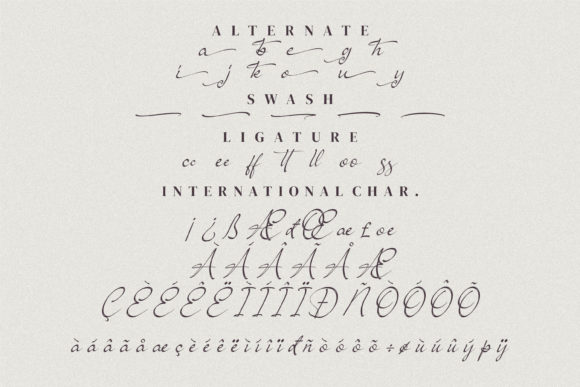 ALTERNATE
a b e g h
i j k o u y
SWASH
LIGATURE
cc ee ff tt ll oo gg
INTERNATIONAL CHAR.
¡ ¿ ß Æ đ Œ æ £ œ
À Á Â Ã Å Æ
Ç È É Ê Ë Ì Í Î Ï Đ Ñ Ò Ó Ô Õ
à á â ã å æ ç è é ê ë ì í î ï đ ñ ò ó ô õ ÷ ø ù ú û ý þ ÿ